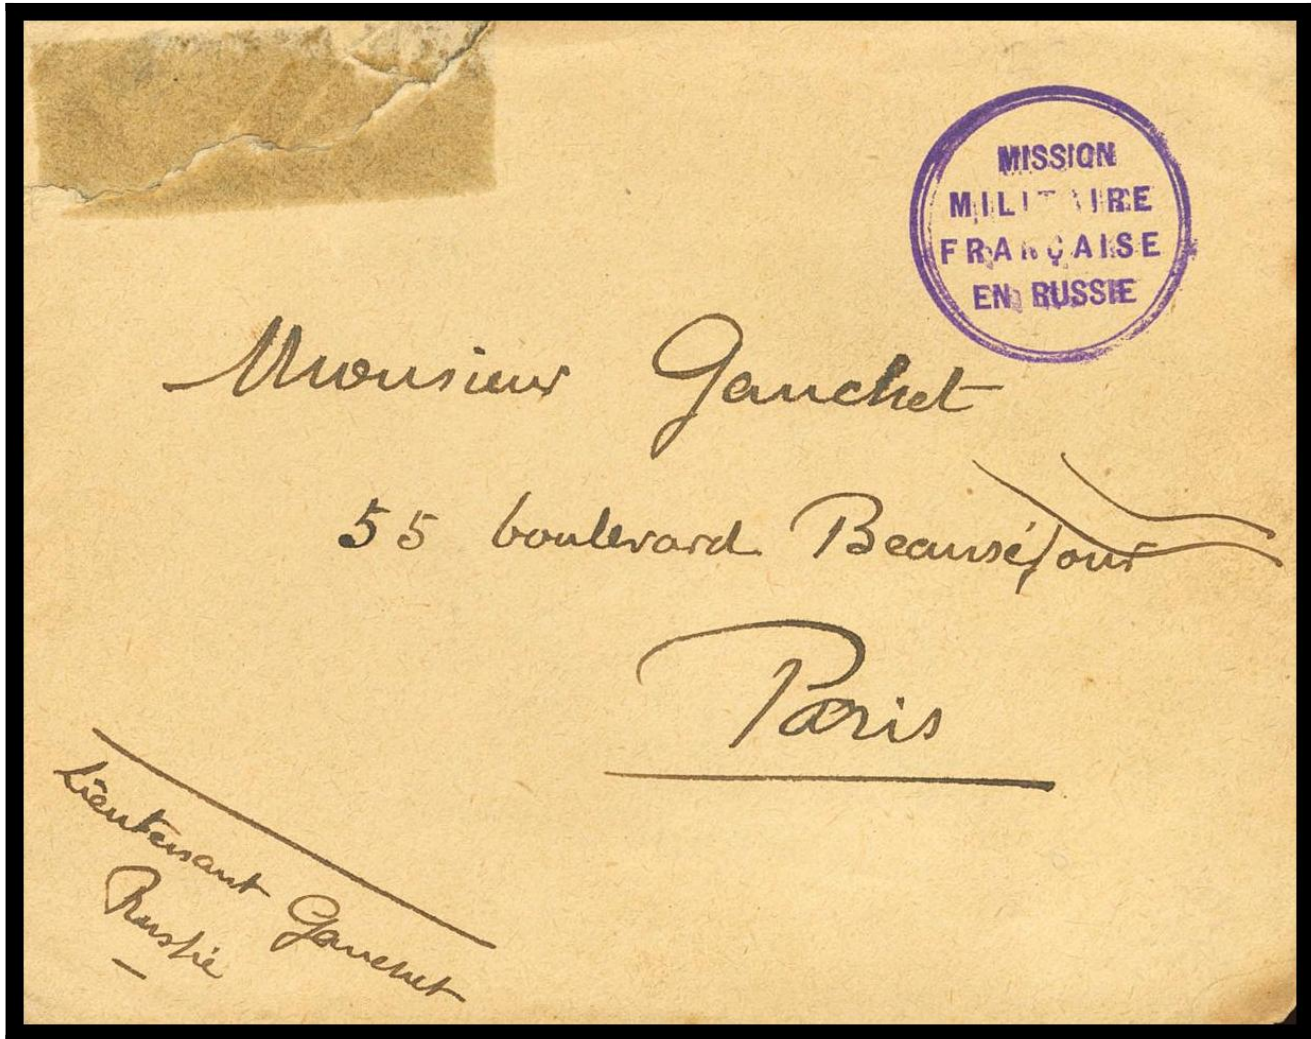 MISSION
MILITAIRE
FRANÇAISE
EN RUSSIE
Monsieur Gauchet
55 boulevard Beauséjour
Paris
Lieutenant Gauchet
Russie